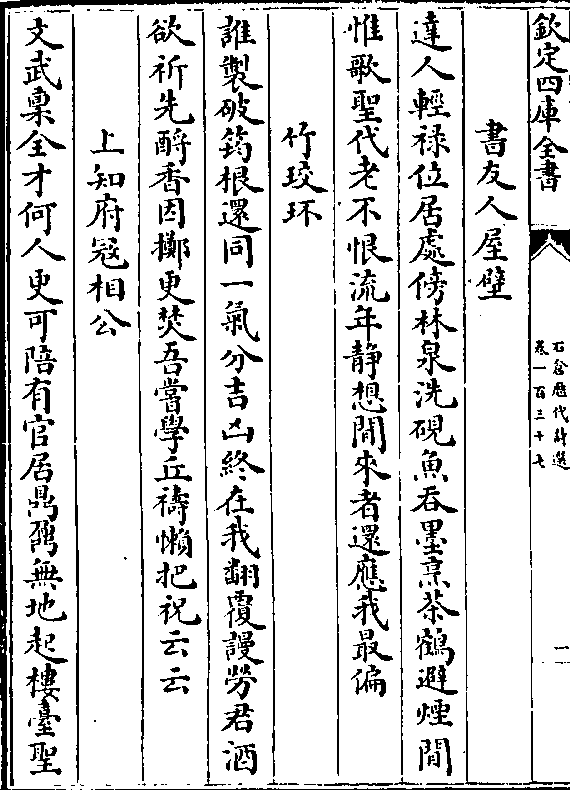 欽定四庫全書
石倉歷代詩選
卷一百三十七
書友人屋壁
達人輕祿位居處傍林泉洗硯魚吞墨烹茶鶴避煙閒
惟歌聖代老不恨流年靜想閒來者還應我最偏
竹珓环
誰製破筠根還同一氣分吉凶終在我翻覆謾勞君酒
欲祈先酹香因擲更焚吾嘗學丘禱懶把祝云云
上知府冦相公
文武稟全才何人更可陪有官居鼎鼐無地起樓臺聖